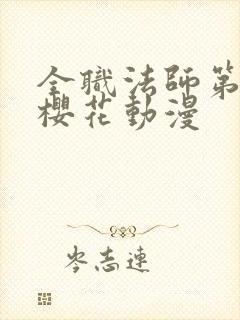 全職法師第
櫻花動漫
岑志連